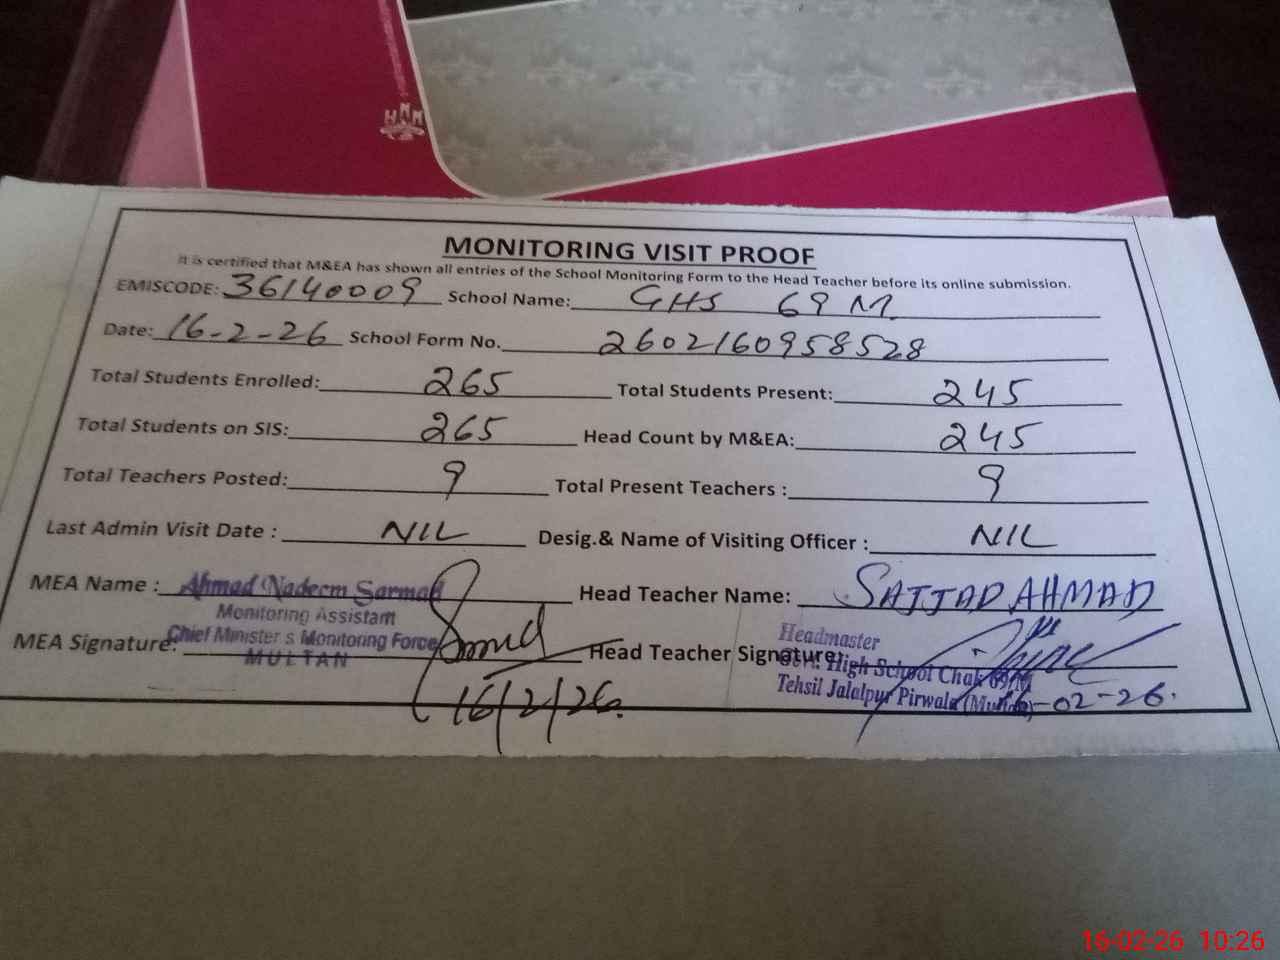 HMM
MONITORING VISIT PROOF
It is certified that M&EA has shown all entries of the School Monitoring Form to the Head Teacher before its online submission.
EMISCODE: 36140009 School Name: GHS 69 M.
Date: 16-2-26 School Form No. 2602160958528
Total Students Enrolled: 265 Total Students Present: 245
Total Students on SIS: 265 Head Count by M&EA: 245
Total Teachers Posted: 9 Total Present Teachers : 9
Last Admin Visit Date : NIL Desig.& Name of Visiting Officer : NIL
MEA Name : Ahmad Nadeem Sarmad Head Teacher Name: SAJJAD AHMAD
Monitoring Assistant
Chief Minister s Monitoring Force
MULTAN
MEA Signature: Head Teacher Signature:
16/2/26.
Headmaster
Govt. High School Chak 69/M
Tehsil Jalalpur Pirwala (Multan)
16-02-26.
16-02-26 10:26